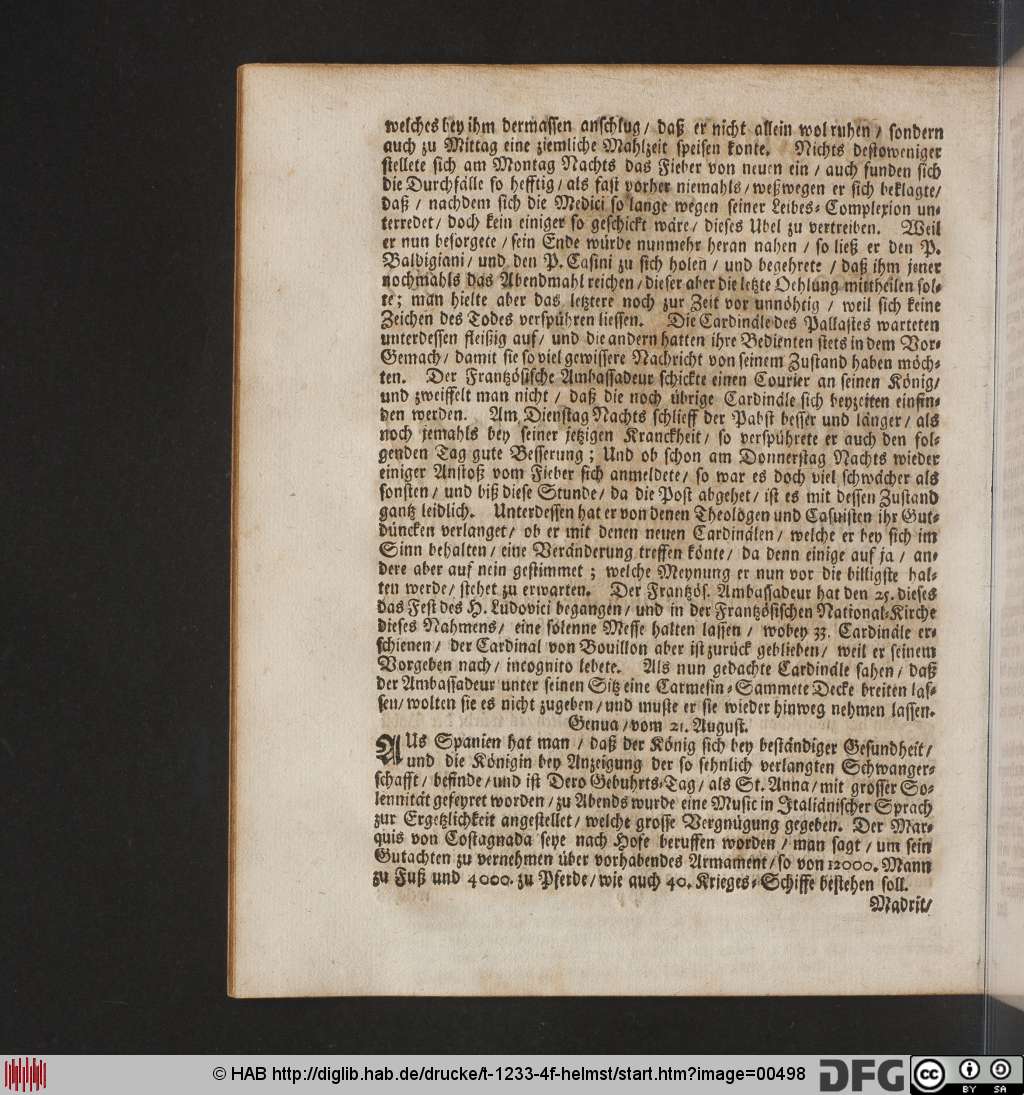 welches bey ihm dermassen anschlug / daß er nicht allein wol ruhen / sondern
auch zu Mittag eine ziemliche Mahlzeit speisen konte. Nichts destoweniger
stellete sich am Montag Nachts das Fieber von neuen ein / auch funden sich
die Durchfälle so hefftig / als fast vorher niemahls / weßwegen er sich beklagte /
daß / nachdem sich die Medici so lange wegen seiner Leibes-Complexion un-
terredet / doch kein einiger so geschickt wäre / dieses Ubel zu vertreiben. Weil
er nun besorgete / sein Ende würde nunmehr heran nahen / so ließ er den P.
Baldigiani / und den P. Casini zu sich holen / und begehrete / daß ihm jener
nochmahls das Abendmahl reichen / dieser aber die letzte Oehlung mittheilen sol-
te; man hielte aber das letztere noch zur Zeit vor unnöhtig / weil sich keine
Zeichen des Todes verspühren liessen. Die Cardinäle des Pallastes warteten
unterdessen fleißig auf / und die andern hatten ihre Bedienten stets in dem Vor-
Gemach / damit sie so viel gewissere Nachricht von seinem Zustand haben möch-
ten. Der Frantzösische Ambassadeur schickte einen Courier an seinen König /
und zweiffelt man nicht / daß die noch übrige Cardinäle sich beyzeiten einfin-
den werden. Am Dienstag Nachts schlieff der Pabst besser und länger / als
noch jemahls bey seiner jetzigen Kranckheit / so verspührete er auch den fol-
genden Tag gute Besserung; Und ob schon am Donnerstag Nachts wieder
einiger Anstoß vom Fieber sich anmeldete / so war es doch viel schwächer als
sonsten / und biß diese Stunde / da die Post abgehet / ist es mit dessen Zustand
gantz leidlich. Unterdessen hat er von denen Theologen und Casuisten ihr Gut-
düncken verlanget / ob er mit denen neuen Cardinälen / welche er bey sich im
Sinn behalten / eine Veränderung treffen könte / da denn einige auf ja / an-
dere aber auf nein gestimmet; welche Meynung er nun vor die billigste hal-
ten werde / stehet zu erwarten. Der Frantzös. Ambassadeur hat den 25. dieses
das Fest des H. Ludovici begangen / und in der Frantzösischen National-Kirche
dieses Nahmens / eine solenne Messe halten lassen / wobey 33. Cardinäle er-
schienen / der Cardinal von Bouillon aber ist zurück geblieben / weil er seinem
Vorgeben nach / incognito lebete. Als nun gedachte Cardinäle sahen / daß
der Ambassadeur unter seinen Sitz eine Carmesin-Sammete Decke breiten las-
sen / wolten sie es nicht zugeben / und muste er sie wieder hinweg nehmen lassen.
Genua / vom 21. August.
AUs Spanien hat man / daß der König sich bey beständiger Gesundheit /
und die Königin bey Anzeigung der so sehnlich verlangten Schwanger-
schafft / befinde / und ist Dero Gebuhrts-Tag / als St. Anna / mit grosser So-
lennität gefeyret worden / zu Abends wurde eine Music in Italiänischer Sprach
zur Ergetzlichkeit angestellet / welche grosse Vergnügung gegeben. Der Mar-
quis von Costagnada seye nach Hofe beruffen worden / man sagt / um sein
Gutachten zu vernehmen über vorhabendes Armament / so von 12000. Mann
zu Fuß und 4000. zu Pferde / wie auch 40. Krieges-Schiffe bestehen soll.
Madrit /
© HAB http://diglib.hab.de/drucke/t-1233-4f-helmst/start.htm?image=00498
DFG
cc BY SA